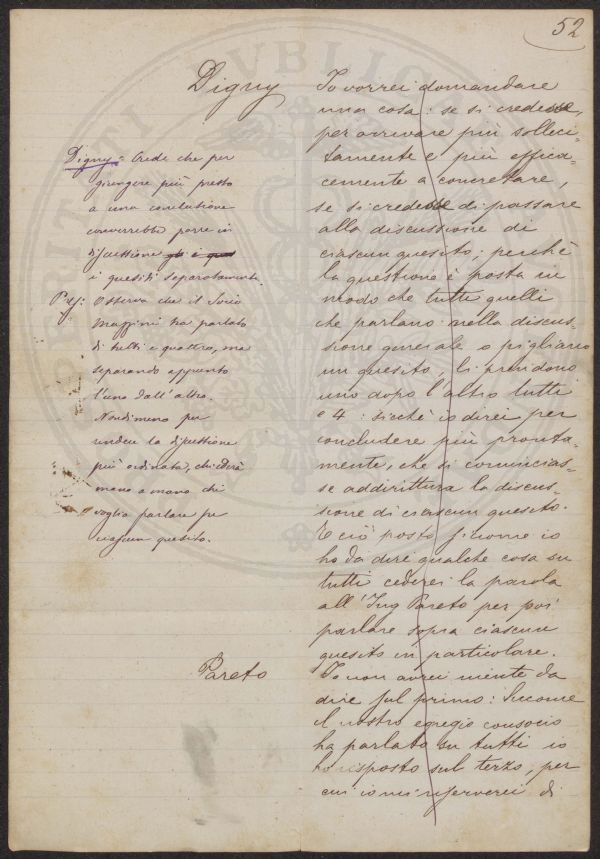 52
Digny
Io vorrei domandare
una cosa: se si credesse,
per arrivare più solleci-
tamente e più effica-
cemente a concretare,
se si credesse di passare
alla discussione di
ciascun quesito; perchè
la questione è posta in
modo che tutti quelli
che parlano nella discus-
sione generale o pigliano
un quesito, li prendono
uno dopo l'altro tutti
e 4: sicchè io direi per
concludere più pronta-
mente, che si comincias-
se addirittura la discus-
sione di ciascun quesito.
E ciò posto siccome io
ho da dire qualche cosa su
tutti cederei la parola
all'Ing Pareto per poi
parlare sopra ciascun
quesito in particolare.
Digny = Crede che per
giungere più presto
a una conclusione
converrebbe porre in
discussione
i quesiti separatamente.
Pres: Osserva che il Socio
ha parlato
di tutti e quattro, ma
separando appunto
l'uno dall'altro.
Nondimeno per
render la discussione
più ordinata, chiederà
mano a mano chi
voglia parlare per
ciascun quesito.
Pareto
Io non avrei niente da
dire sul primo: Siccome
il nostro egregio consocio
ha parlato su tutti io
ho risposto sul terzo, per
cui io mi riserverei di